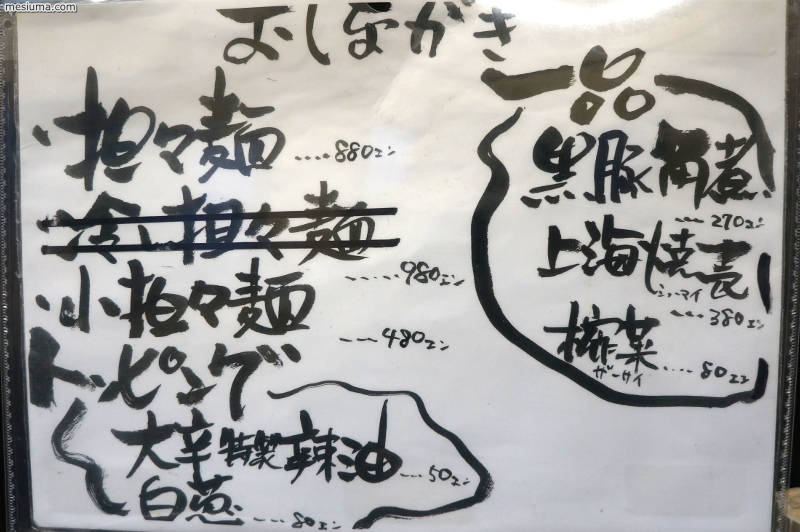 mesluma.com
おしながき
担々麺 ....880エン
冷し担々麺
.....980エン
小担々麺
....480エン
トッピング
大辛特製辣油 ...50エン
白葱 ....80エン
一品
黒豚角煮
....270エン
上海焼売
シューマイ
....380エン
榨菜 ....80エン
ザーサイ